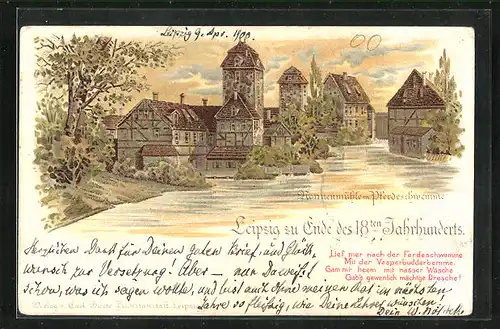 Leipzig 9. Apr. 1900.
Nonnenmühle m. Pferdeschwemme
Leipzig zu Ende des 18ten Jahrhunderts.
Lief mer nach der Ferdeschwemme
Mit der Vesperbudderbemme,
Gam mr heem mit nasser Wäsche
Gab's gewenlich mächtge Dresche!
Herzlichen Dank für Deinen guten Brief, und Glück-
wunsch zur Versetzung. Aber – nun Du weißt
schon, was ich sagen wollte, und bist auch ohne meinen im nächsten
Jahre so fleißig, wie Deine Lehrer wünschen!
Dein
Verlag v. Leipzig